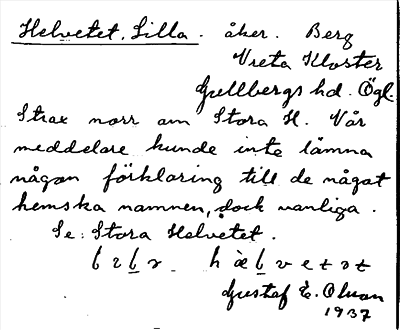 Helvetet, Lilla. åker. Berg
Vreta Kloster
Gullbergs hd. Ögl.
Strax norr om Stora H. Vår
meddelare kunde inte lämna
någon förklaring till de något
hemska namnen, dock vanliga.
Se: Stora Helvetet.
hælvetət
Gustaf E. Olsson
1937